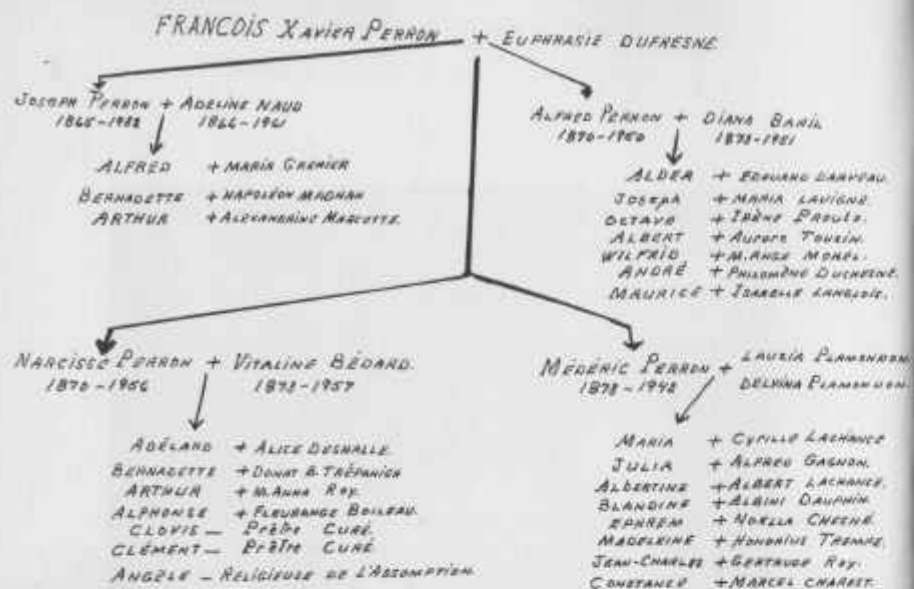 FRANCOIS XAVIER PERRON + EUPHRASIE DUFRESNE
JOSEPH PERRON + ADELINE NAUD
1865-19 1866-1961
ALFRED + MARIA GRENIER
BERNADETTE + NAPOLÉON MAGNAN
ARTHUR + ALEXANDRINE MARCOTTE.
ALFRED PERRON + DIANA BARIL
1870-1950 1878-1951
ALDEA + EDOUARD DARVEAU.
JOSEPH + MARIA LAVIGNE.
OCTAVE + IRÈNE PROULX.
ALBERT + AURORE TOUZIN.
WILFRID + M.ANGE MOREL.
ANDRÉ + PHILOMÈNE DUCHESNE.
MAURICE + ISABELLE LANGLOIS.
NARCISSE PERRON + VITALINE BÉDARD.
1870-1956 1873-1957
ADÉLARD + ALICE DESHALLE.
BERNADETTE + DONAT B. TRÉPANIER
ARTHUR + M.ANNA ROY.
ALPHONSE + FLEURANGE BOILEAU.
CLOVIS — PRÊTRE CURÉ.
CLÉMENT — PRÊTRE CURÉ
ANGÈLE — RELIGIEUSE DE L'ASSOMPTION
MÉDÉRIC PERRON + LAUZIA PLAMONDON
1878-1942 DELVINA PLAMONDON.
MARIA + CYRILLE LACHANCE
JULIA + ALFRED GAGNON.
ALBERTINE + ALBERT LACHANCE.
BLANDINE + ALBINI DAUPHIN.
EPHREM + NOELLA CHESNÉ.
MADELEINE + HONORIUS TREMPE.
JEAN-CHARLES + GERTRUDE ROY.
CONSTANCE + MARCEL CHAREST.